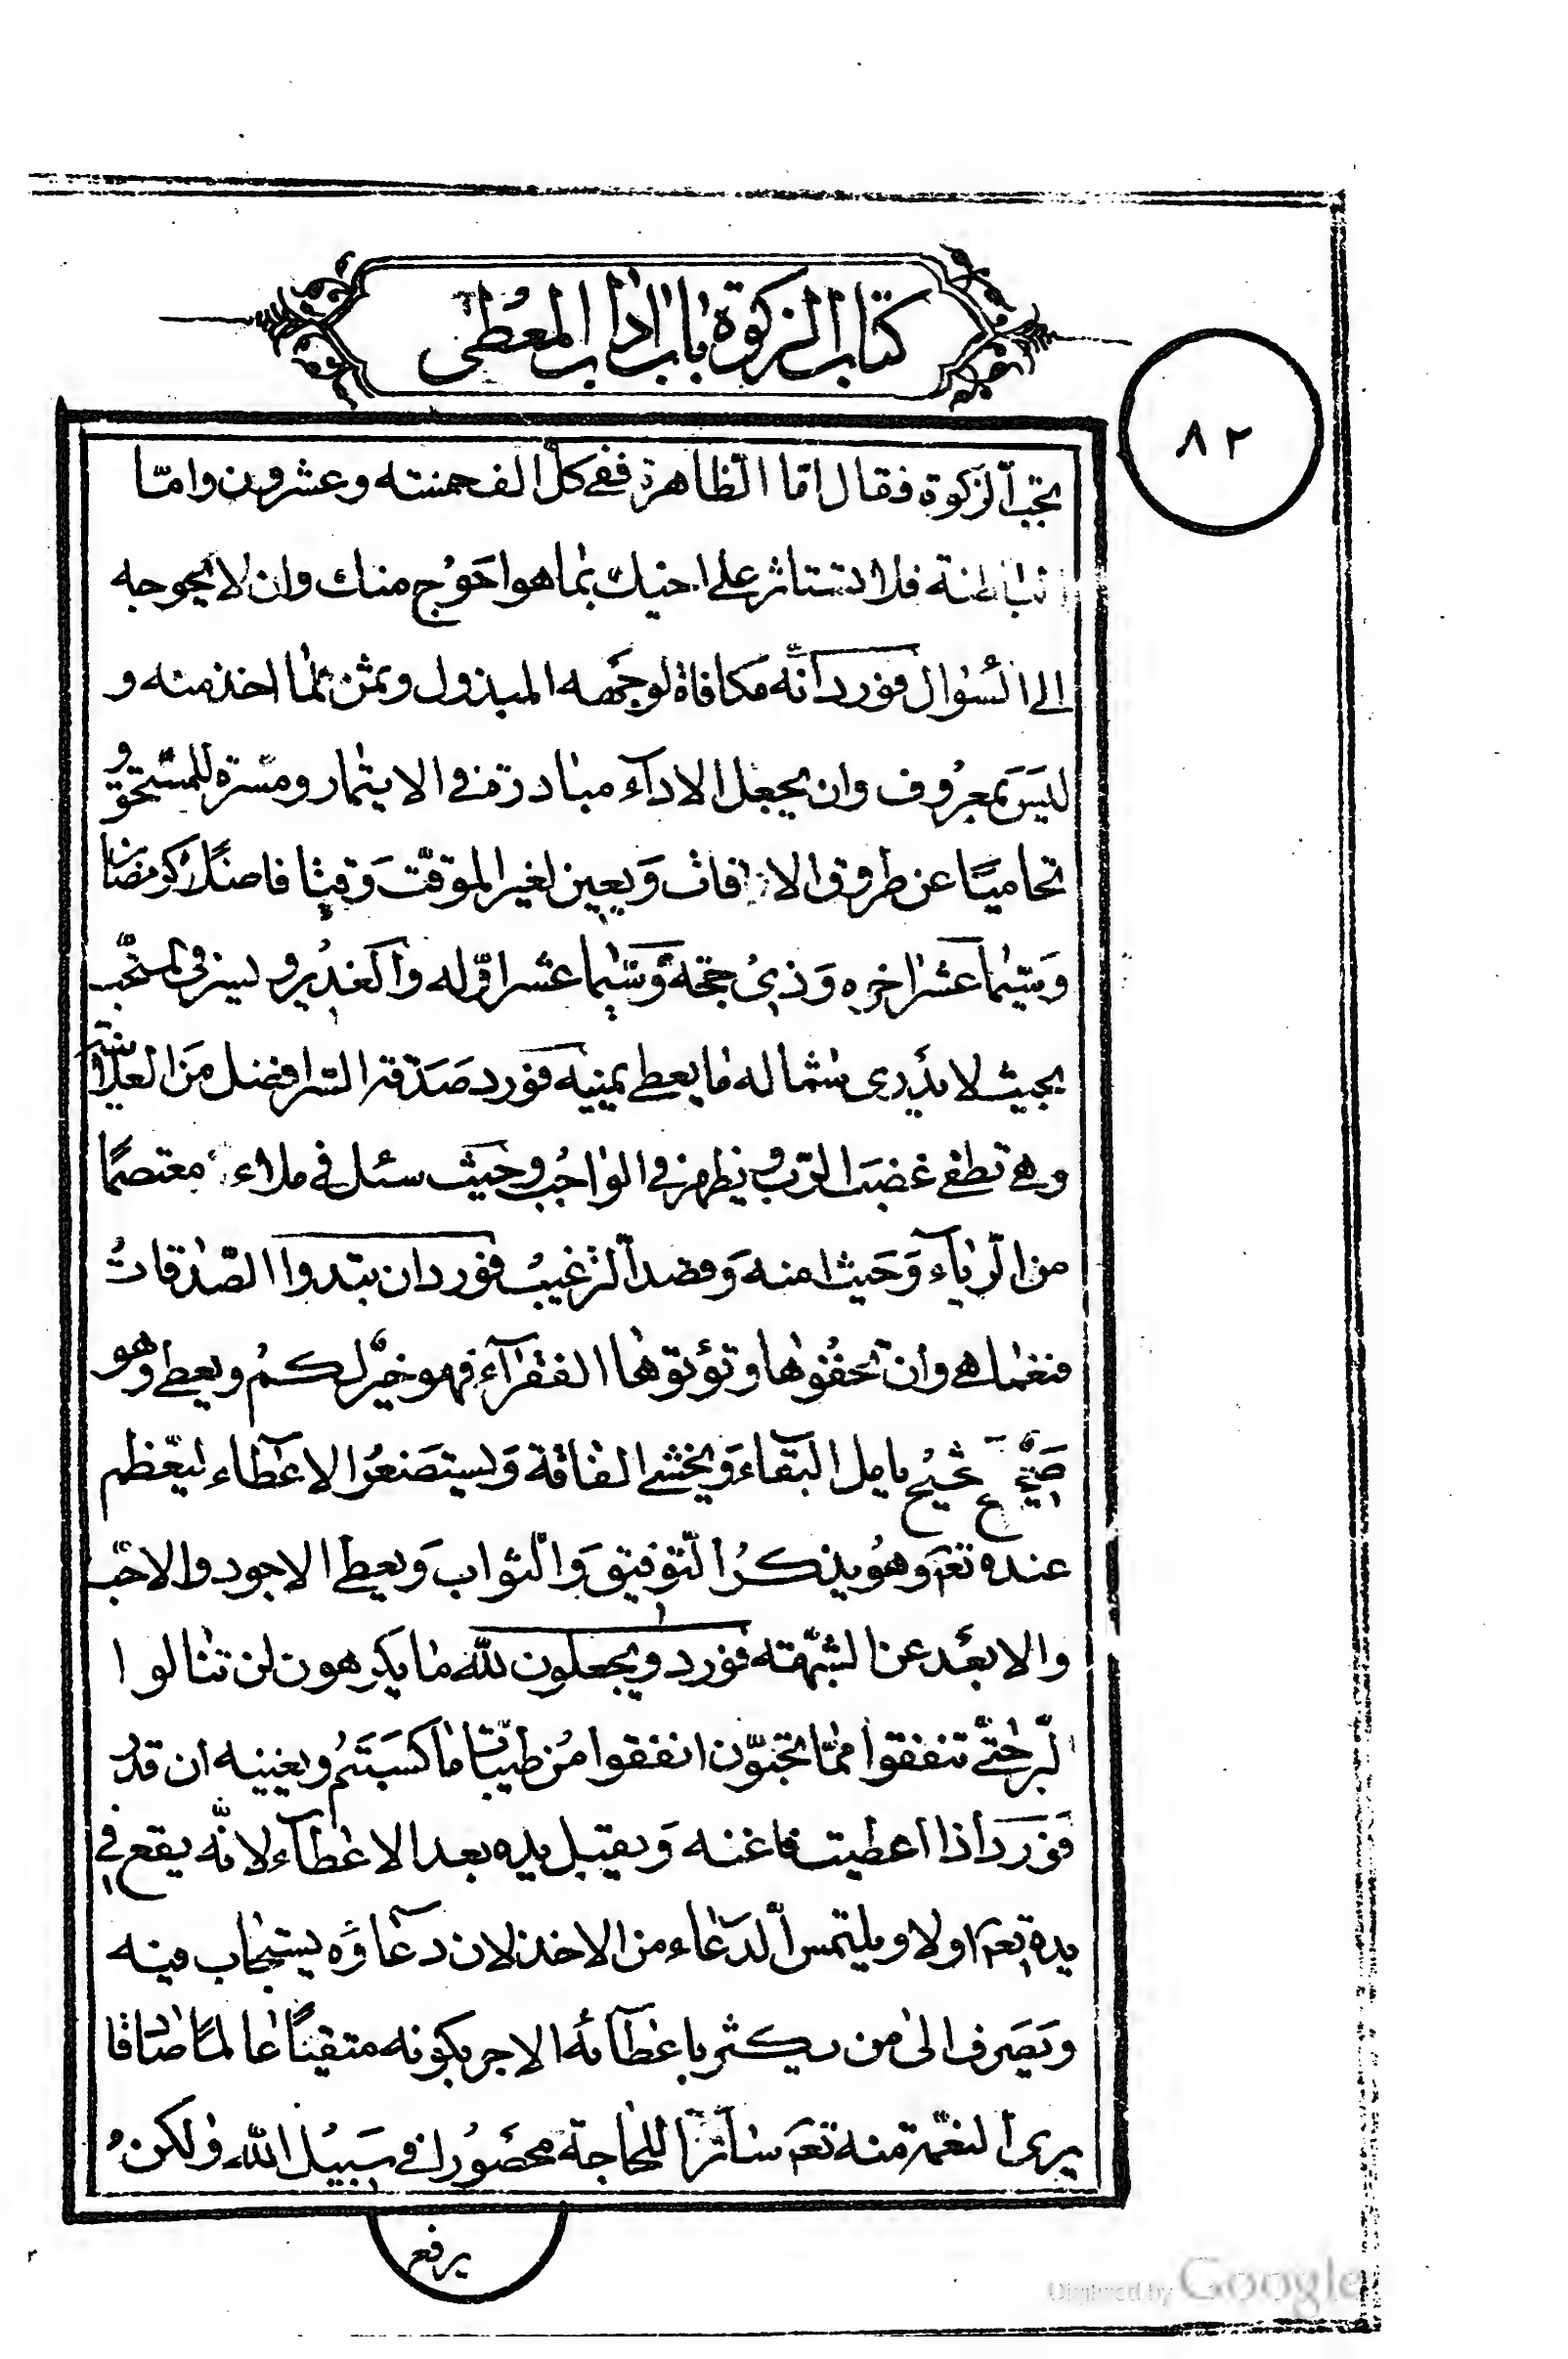 كتاب الزكوة باب اداب المعطى
٨٢
تجب الزكوة فقال امّا الظاهرة ففى كل الف خمسة وعشرون وامّا
الباطنة فلا تستاثر على اخيك بما هو احوج منك وان لا يحوجه
الى السؤال فورد انّه مكافاة لوجهه المبذول وثمن لما اخذ منه و
ليس بمعروف وان يجعل الاداء مبادرة فى الايتمار ومسرة للمستحق و
تحاميًا عن طروق الافات ويعين لغير الموقّت وقتا فاضلا كرمضان
وسيّما عشر اخره وذى حجة وسيّما عشر اوّله والغدير ويسرّ فى المستحب
بحيث لا يدرى شماله ما يعطى يمينه فورد صدقة السر افضل من العلانية
وهى تطفى غضب الرب ويظهر فى الواجب وحيث سئل فى ملاء معتصمًا
من الرياء وحيث امنه وقصد الترغيب فورد ان تبدوا الصّدقات
فنعما هى وان تخفوها وتؤتوها الفقراء فهو خير لكم ويعطى وهو
صحيح شحيح يامل البقاء ويخشى الفاقة ويستصغر الاعطاء ليعظم
عنده تعم وهو يذكر التوفيق والثواب ويعطى الاجود والاحب
والابعد عن الشبهة فورد ويجعلون لله ما يكرهون لن تنالوا
البر حتى تنفقوا ممّا تحبّون انفقوا من طيّبات ما كسبتم ويغنيه ان قدر
فورد اذا اعطيت فاغنه ويقبل يده بعد الاعطاء لانّه يقع فى
يده تعم اولا ويلتمس الدعاء من الاخذ لان دعاؤه يستجاب فيه
ويصرف الى من يكثر باعطائه الاجر بكونه متقيًا عالمًا صادقا
يرى النعمة منه تعم ساترا للحاجة محصورا فى سبيل الله ولكن
يرفع
Digitized by Google